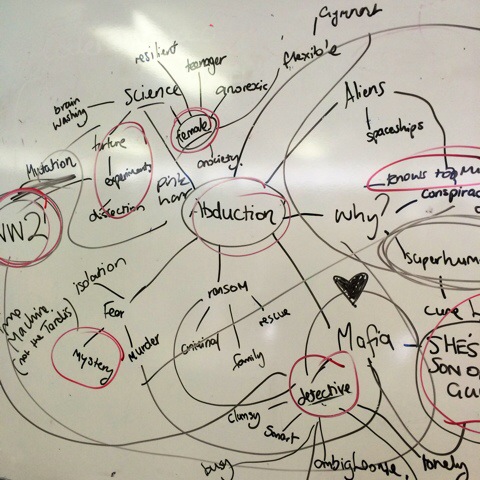 Gymnast
resilient
teenager
flexible
Science
anorexic
Aliens
brain
washing
female
spaceships
torture
anxiety
Mutation
experiments
pink
hair
KNOWS TOO MU
conspirac
dissection
Abduction
why?
WW2
superhum
isolation
ransom
cure
Machine.
(not the Tardis)
Fear
rescue
Mafia
SHE'S
SON O
Mystery
Murder
criminal
family
detective
clumsy
smart
busy
lonely